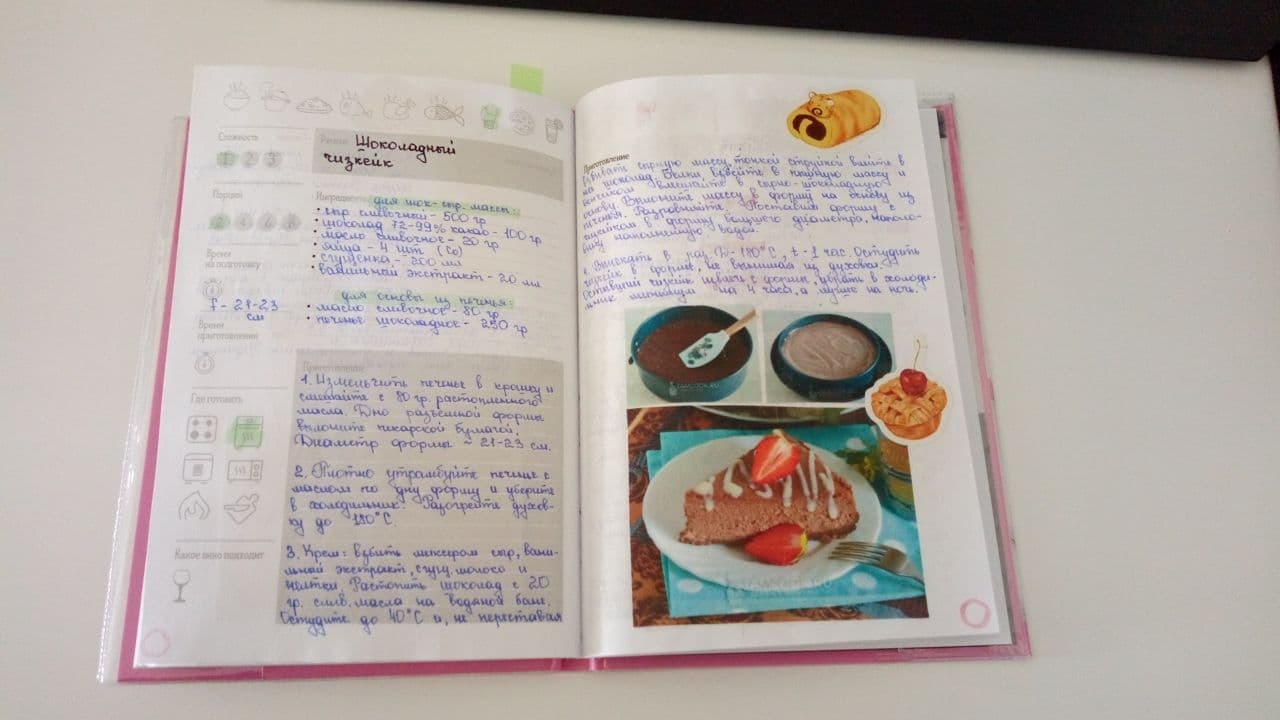 Сложность
1 2 3
Порции
2 4 6 8
Время
на подготовку
f - 21-23
см
Время
приготовления
Где готовить
Какое вино подходит
Рецепт Шоколадный
чизкейк
Ингредиенты для шок-сыр. массы:
• сыр сливочный - 500 гр
• шоколад 72-99% какао - 100 гр
• масло сливочное - 20 гр
• яйца - 4 шт (С0)
• сгущенка - 200 мл
• ванильный экстракт - 20 мл
для основы из печенья:
• масло сливочное - 80 гр
• печенье шоколадное - 250 гр
Приготовление
1. Измельчить печенье в крошку и
смешайте с 80 гр. растопленного
масла. Дно разъемной формы
выложите пекарской бумагой.
Диаметр формы ~ 21-23 см.
2. Плотно утрамбуйте печенье с
маслом по дну форму и уберите
в холодильник. Разогрейте духов-
ку до 180°С.
3. Крем: взбить миксером сыр, вани-
льный экстракт, сгущ. молоко и
желтки. Растопить шоколад с 20
гр. слив. масла на водяной бане.
Остудите до 40°С и, не переставая
Приготовление
взбивать сырную массу, тонкой струйкой влейте в
на шоколад. Белки взбейте в пышную массу и
венчиком вмешайте в сырно-шоколадную
основу. Выложите массу в форму на основу из
печенья. Разровняйте. Поставив форму с
чизкейком в форму большего диаметра, наполо-
вину наполненную водой.
4. Выпекать в раз. D-180°С, t-1 час. Остудить
чизкейк в форме, не вынимая из духовки.
Остывший чизкейк извлечь с формы, убрать в холоди-
льник минимум на 4 часа, а лучше на ночь.